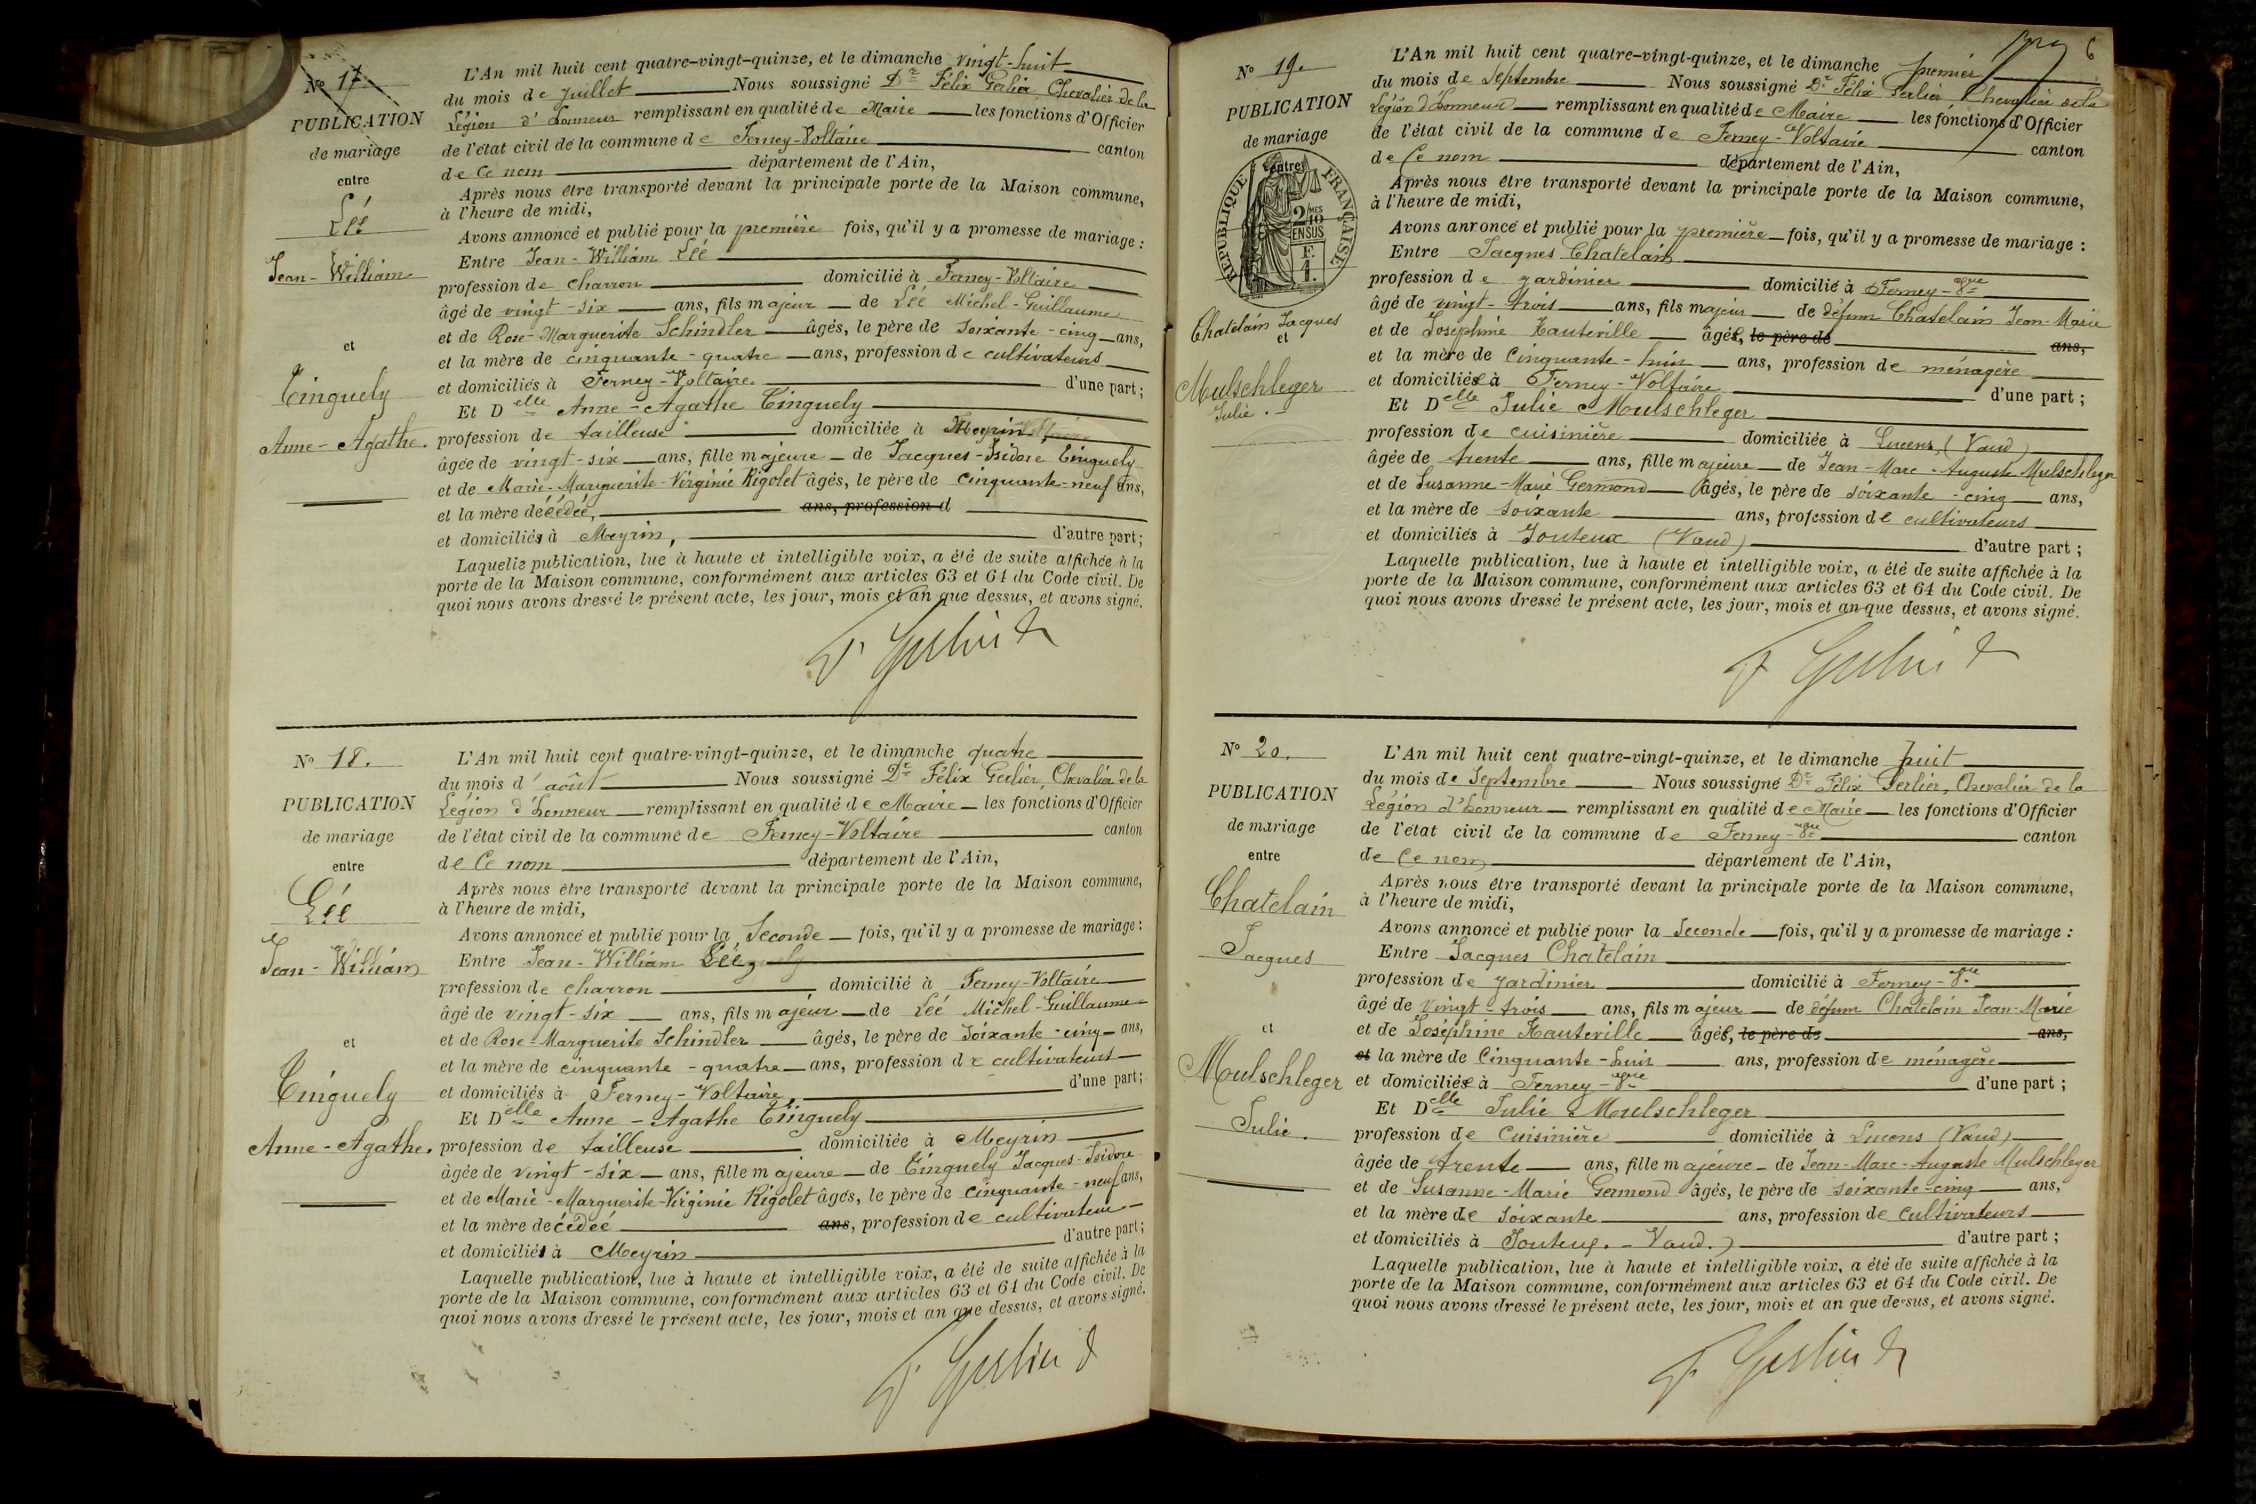 No 17.
PUBLICATION
de mariage
entre
Léé
Jean-William
et
Tinguely
Anne-Agathe.
L'An mil huit cent quatre-vingt-quinze, et le dimanche vingt-huit
du mois de juillet Nous soussigné Dr Félix Gerlier Chevalier de la
Légion d'honneur remplissant en qualité de Maire les fonctions d'Officier
de l'état civil de la commune de Ferney-Voltaire canton
de Ce nom département de l'Ain,
Après nous être transporté devant la principale porte de la Maison commune,
à l'heure de midi,
Avons annoncé et publié pour la première fois, qu'il y a promesse de mariage :
Entre Jean-William Léé
profession de charron domicilié à Ferney-Voltaire
âgé de vingt-six ans, fils majeur de Léé Michel-Guillaume
et de Rose-Marguerite Schindler âgés, le père de soixante-cinq ans,
et la mère de cinquante-quatre ans, profession de cultivateurs
et domiciliés à Ferney-Voltaire. d'une part ;
Et Delle Anne-Agathe Tinguely
profession de tailleuse domiciliée à Meyrin
âgée de vingt-six ans, fille majeure de Jacques-Isidore Tinguely
et de Marie-Marguerite-Virginie Rigolet âgés, le père de cinquante-neuf ans,
et la mère décédée, ans, profession d
et domiciliés à Meyrin, d'autre part ;
Laquelle publication, lue à haute et intelligible voix, a été de suite affichée à la
porte de la Maison commune, conformément aux articles 63 et 64 du Code civil. De
quoi nous avons dressé le présent acte, les jour, mois et an que dessus, et avons signé.
F. Gerlier
No 18.
PUBLICATION
de mariage
entre
Léé
Jean-William
et
Tinguely
Anne-Agathe.
L'An mil huit cent quatre-vingt-quinze, et le dimanche quatre
du mois d'août Nous soussigné Dr Félix Gerlier, Chevalier de la
Légion d'honneur remplissant en qualité de Maire les fonctions d'Officier
de l'état civil de la commune de Ferney-Voltaire canton
de Ce nom département de l'Ain,
Après nous être transporté devant la principale porte de la Maison commune,
à l'heure de midi,
Avons annoncé et publié pour la Seconde fois, qu'il y a promesse de mariage :
Entre Jean-William Léé,
profession de charron domicilié à Ferney-Voltaire
âgé de vingt-six ans, fils majeur de Léé Michel-Guillaume
et de Rose-Marguerite Schindler âgés, le père de soixante-cinq ans,
et la mère de cinquante-quatre ans, profession de cultivateurs
et domiciliés à Ferney-Voltaire, d'une part ;
Et Delle Anne-Agathe Tinguely
profession de tailleuse domiciliée à Meyrin
âgée de vingt-six ans, fille majeure de Tinguely Jacques-Isidore
et de Marie-Marguerite-Virginie Rigolet âgés, le père de cinquante-neuf ans,
et la mère décédée ans, profession de cultivateur
et domiciliés à Meyrin d'autre part ;
Laquelle publication, lue à haute et intelligible voix, a été de suite affichée à la
porte de la Maison commune, conformément aux articles 63 et 64 du Code civil. De
quoi nous avons dressé le présent acte, les jour, mois et an que dessus, et avons signé.
F. Gerlier
6
No 19.
PUBLICATION
de mariage
entre
RÉPUBLIQUE FRANÇAISE
2/10MES
EN SUS
F.
1.
Chatelain Jacques
et
Mulschleger
Julie.
L'An mil huit cent quatre-vingt-quinze, et le dimanche premier
du mois de Septembre Nous soussigné Dr Félix Gerlier Chevalier de la
Légion d'honneur remplissant en qualité de Maire les fonctions d'Officier
de l'état civil de la commune de Ferney-Voltaire canton
de Ce nom département de l'Ain,
Après nous être transporté devant la principale porte de la Maison commune,
à l'heure de midi,
Avons annoncé et publié pour la première fois, qu'il y a promesse de mariage :
Entre Jacques Chatelain
profession de jardinier domicilié à Ferney-Vre
âgé de vingt-trois ans, fils majeur de défunt Chatelain Jean-Marie
et de Joséphine Hauteville âgée, le père de ans,
et la mère de cinquante-huit ans, profession de ménagère
et domiciliée à Ferney-Voltaire d'une part ;
Et Delle Julie Mulschleger
profession de cuisinière domiciliée à Lucens (Vaud)
âgée de trente ans, fille majeure de Jean-Marc-Auguste Mulschleger
et de Susanne-Marie Germond âgés, le père de soixante-cinq ans,
et la mère de soixante ans, profession de cultivateurs
et domiciliés à Jouteux (Vaud) d'autre part ;
Laquelle publication, lue à haute et intelligible voix, a été de suite affichée à la
porte de la Maison commune, conformément aux articles 63 et 64 du Code civil. De
quoi nous avons dressé le présent acte, les jour, mois et an que dessus, et avons signé.
F. Gerlier
No 20.
PUBLICATION
de mariage
entre
Chatelain
Jacques
et
Mulschleger
Julie.
L'An mil huit cent quatre-vingt-quinze, et le dimanche huit
du mois de Septembre Nous soussigné Dr Félix Gerlier, Chevalier de la
Légion d'honneur remplissant en qualité de Maire les fonctions d'Officier
de l'état civil de la commune de Ferney-Vre canton
de Ce nom département de l'Ain,
Après nous être transporté devant la principale porte de la Maison commune,
à l'heure de midi,
Avons annoncé et publié pour la Seconde fois, qu'il y a promesse de mariage :
Entre Jacques Chatelain
profession de jardinier domicilié à Ferney-Vre
âgé de vingt-trois ans, fils majeur de défunt Chatelain Jean-Marie
et de Joséphine Hauteville âgée, le père de ans,
et la mère de cinquante-huit ans, profession de ménagère
et domiciliée à Ferney-Vre d'une part ;
Et Delle Julie Mulschleger
profession de Cuisinière domiciliée à Lucens (Vaud)
âgée de trente ans, fille majeure de Jean-Marc-Auguste Mulschleger
et de Susanne-Marie Germond âgés, le père de soixante-cinq ans,
et la mère de soixante ans, profession de cultivateurs
et domiciliés à Jouteux. - Vaud.) d'autre part ;
Laquelle publication, lue à haute et intelligible voix, a été de suite affichée à la
porte de la Maison commune, conformément aux articles 63 et 64 du Code civil. De
quoi nous avons dressé le présent acte, les jour, mois et an que dessus, et avons signé.
F. Gerlier